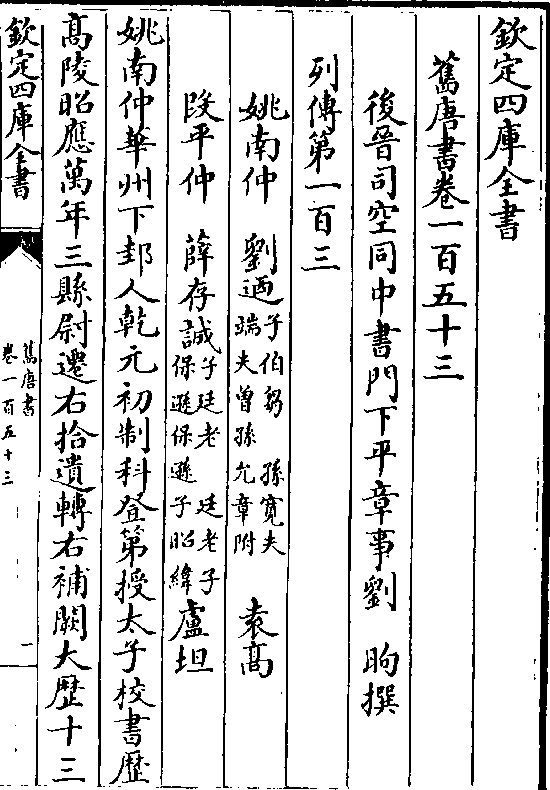 欽定四庫全書
舊唐書卷一百五十三
後晉司空同中書門下平章事劉 昫撰
列傳第一百三
姚南仲 劉迺子伯芻 孫寬夫
端夫曾孫允章附 袁高
段平仲 薛存誠子廷老 廷老子
保遜保遜子昭緯 盧坦
姚南仲華州下邽人乾元初制科登第授太子校書歴
高陵昭應萬年三縣尉遷右拾遺轉右補闕大歴十三
欽定四庫全書
舊唐書
卷一百五十三
一